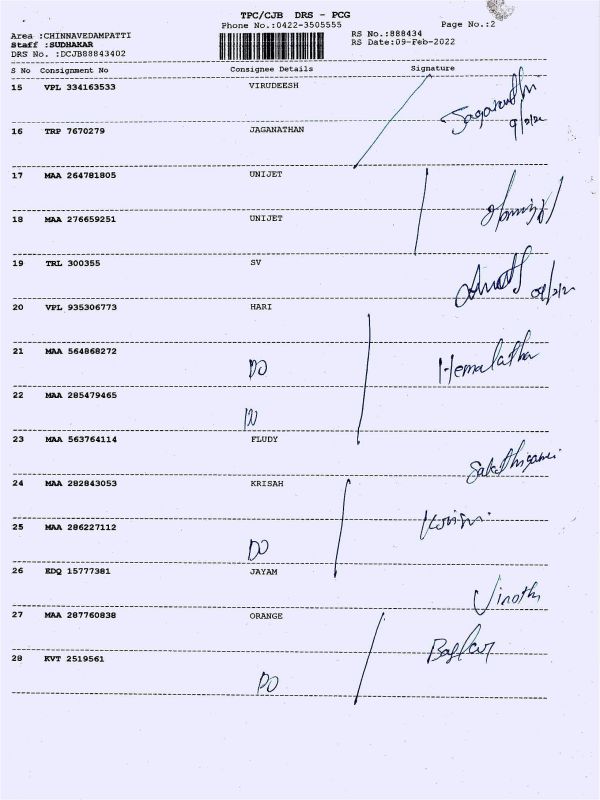 TPC/CJB DRS - PCG
Phone No.:0422-3505555 Page No.:2
Area :CHINNAVEDAMPATTI RS No.:888434
Staff :SUDHAKAR RS Date:09-Feb-2022
DRS No. :DCJB88843402
S No Consignment No Consignee Details Signature
15 VPL 334163533 VIRUDEESH
16 TRP 7670279 JAGANATHAN
17 MAA 264781805 UNIJET
18 MAA 276659251 UNIJET
19 TRL 300355 SV
20 VPL 935306773 HARI
21 MAA 564868272 DO Hemalatha
22 MAA 285479465
23 MAA 563764114 FLUDY
24 MAA 282843053 KRISAH
25 MAA 286227112 DO
26 EDQ 15777381 JAYAM Vinoth
27 MAA 287760838 ORANGE
28 KVT 2519561 DO